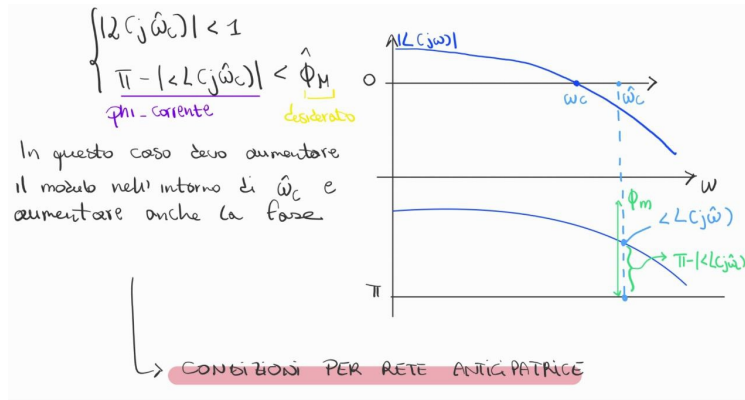 |L(jω̂c)| < 1
π-|<L(jω̂c)| < ϕ̂M
phi_corrente
desiderato
In questo caso devo aumentare
il modulo nell'intorno di ω̂c e
aumentare anche la fase
|L(jω)|
0
ωc
ω̂c
ω
ϕm
<L(jω̂)
π-|<L(jω̂)
π
CONDIZIONI PER RETE ANTICIPATRICE